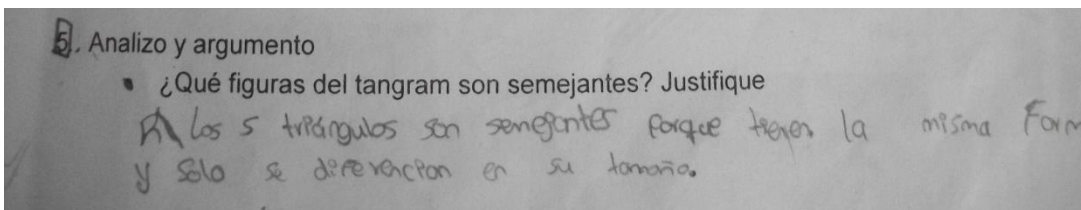 5. Analizo y argumento
• ¿Qué figuras del tangram son semejantes? Justifique
R\ Los 5 triángulos son semejantes porque tienen la misma Form
y solo se diferencian en su tamaño.